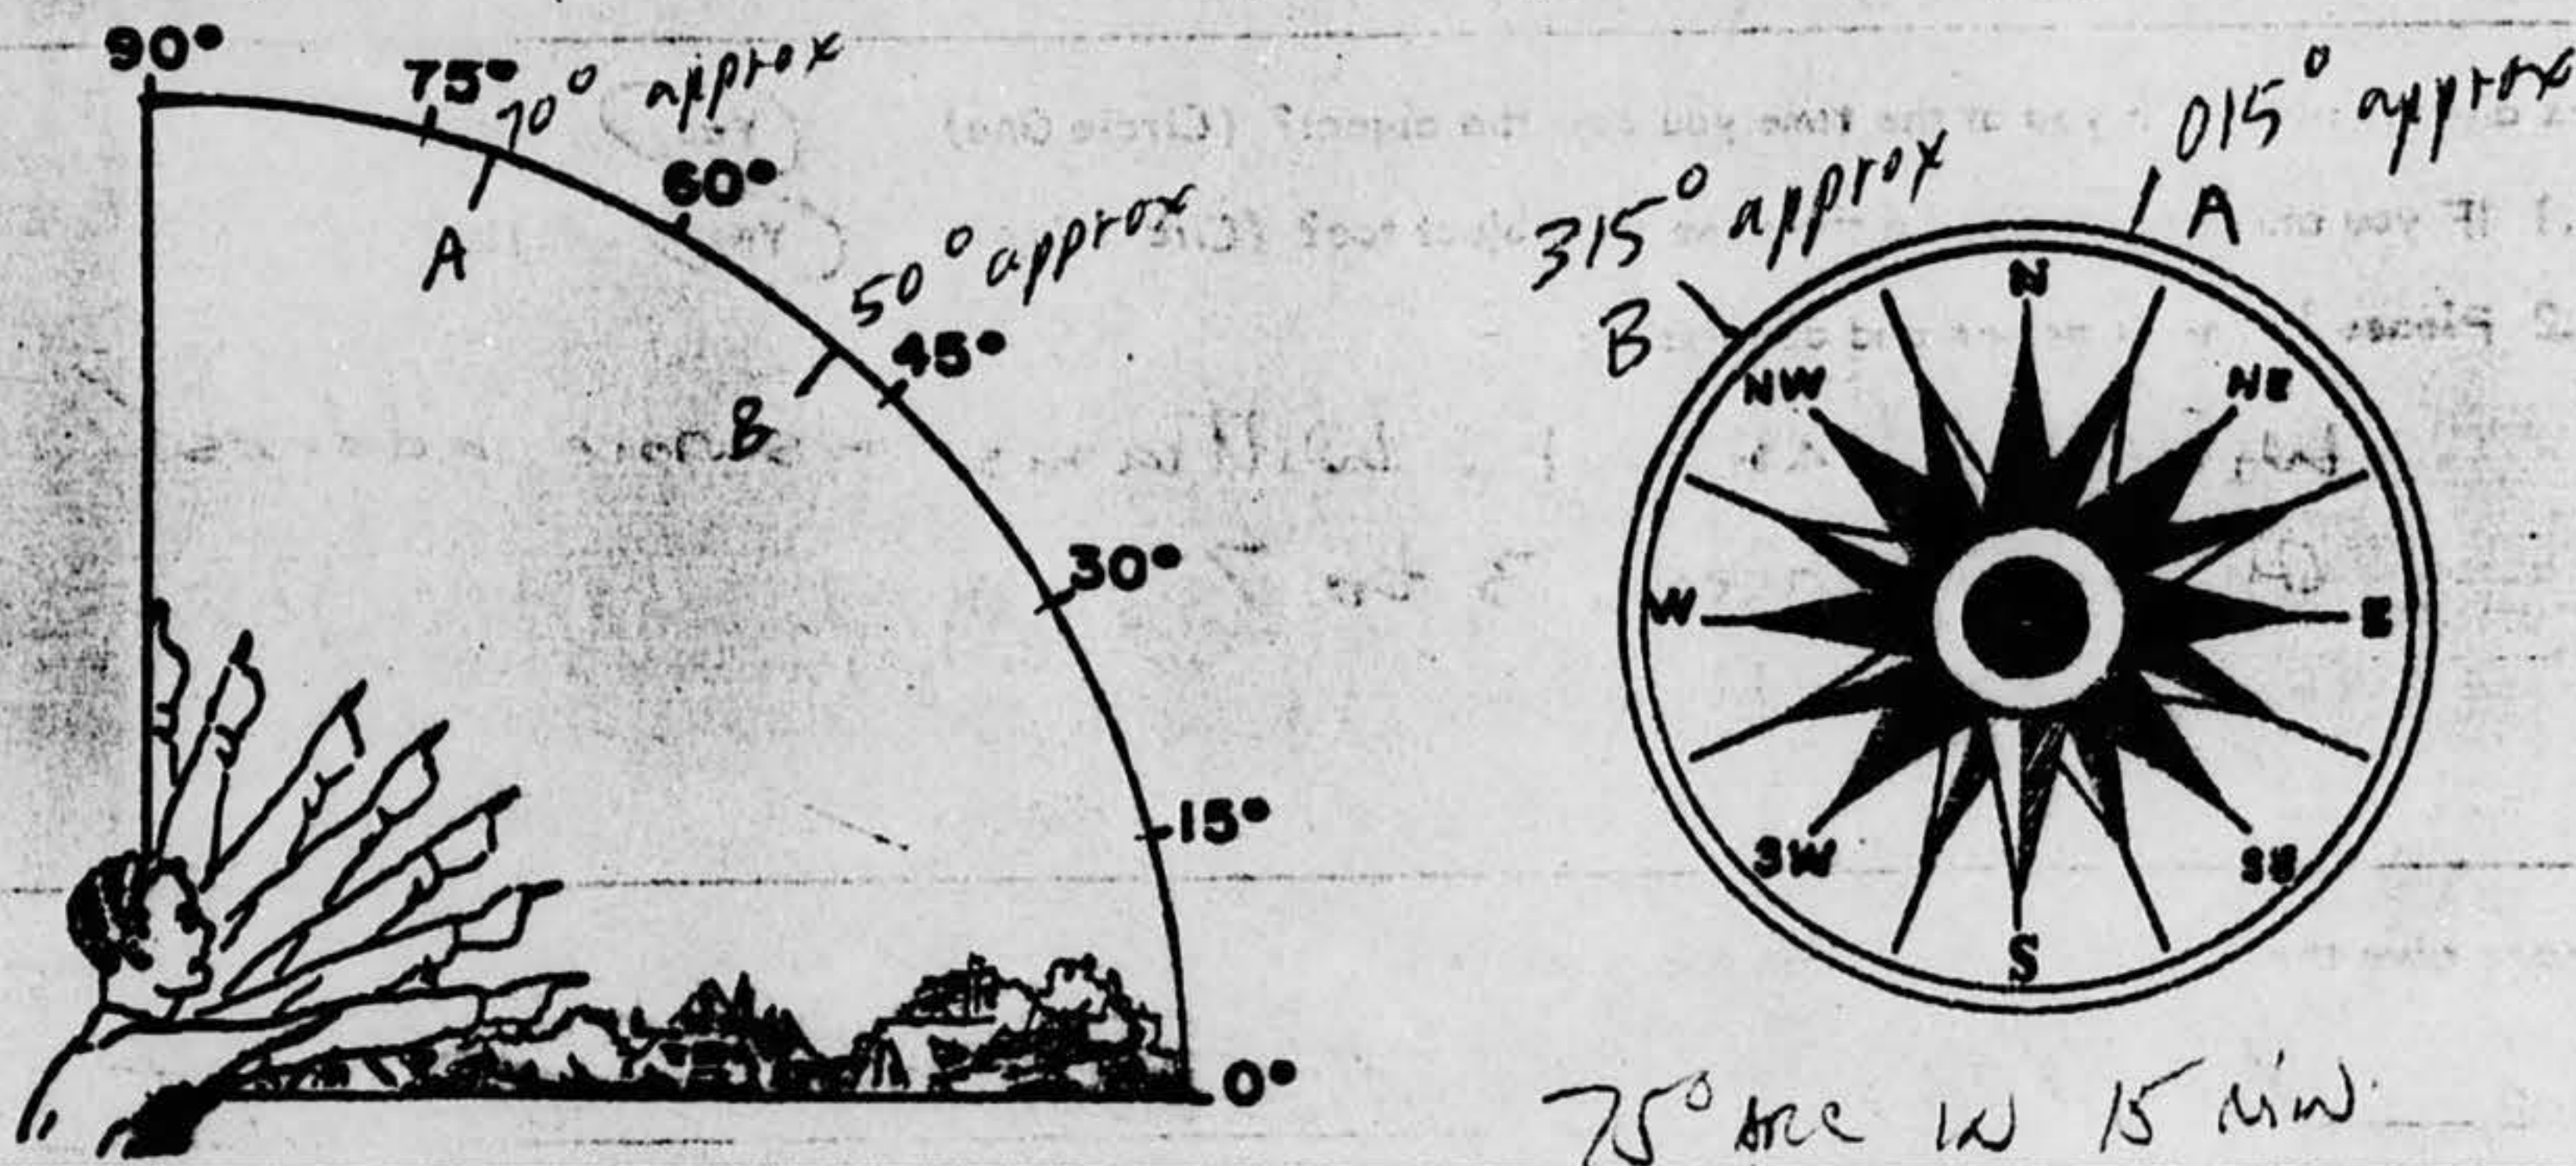 90°
75°
70° approx
A
60°
50° approx
45°
B
30°
15°
0°
015° approx
A
315° approx
B
N
NW
NE
W
E
SW
SE
S
75° ARC IN 15 MIN